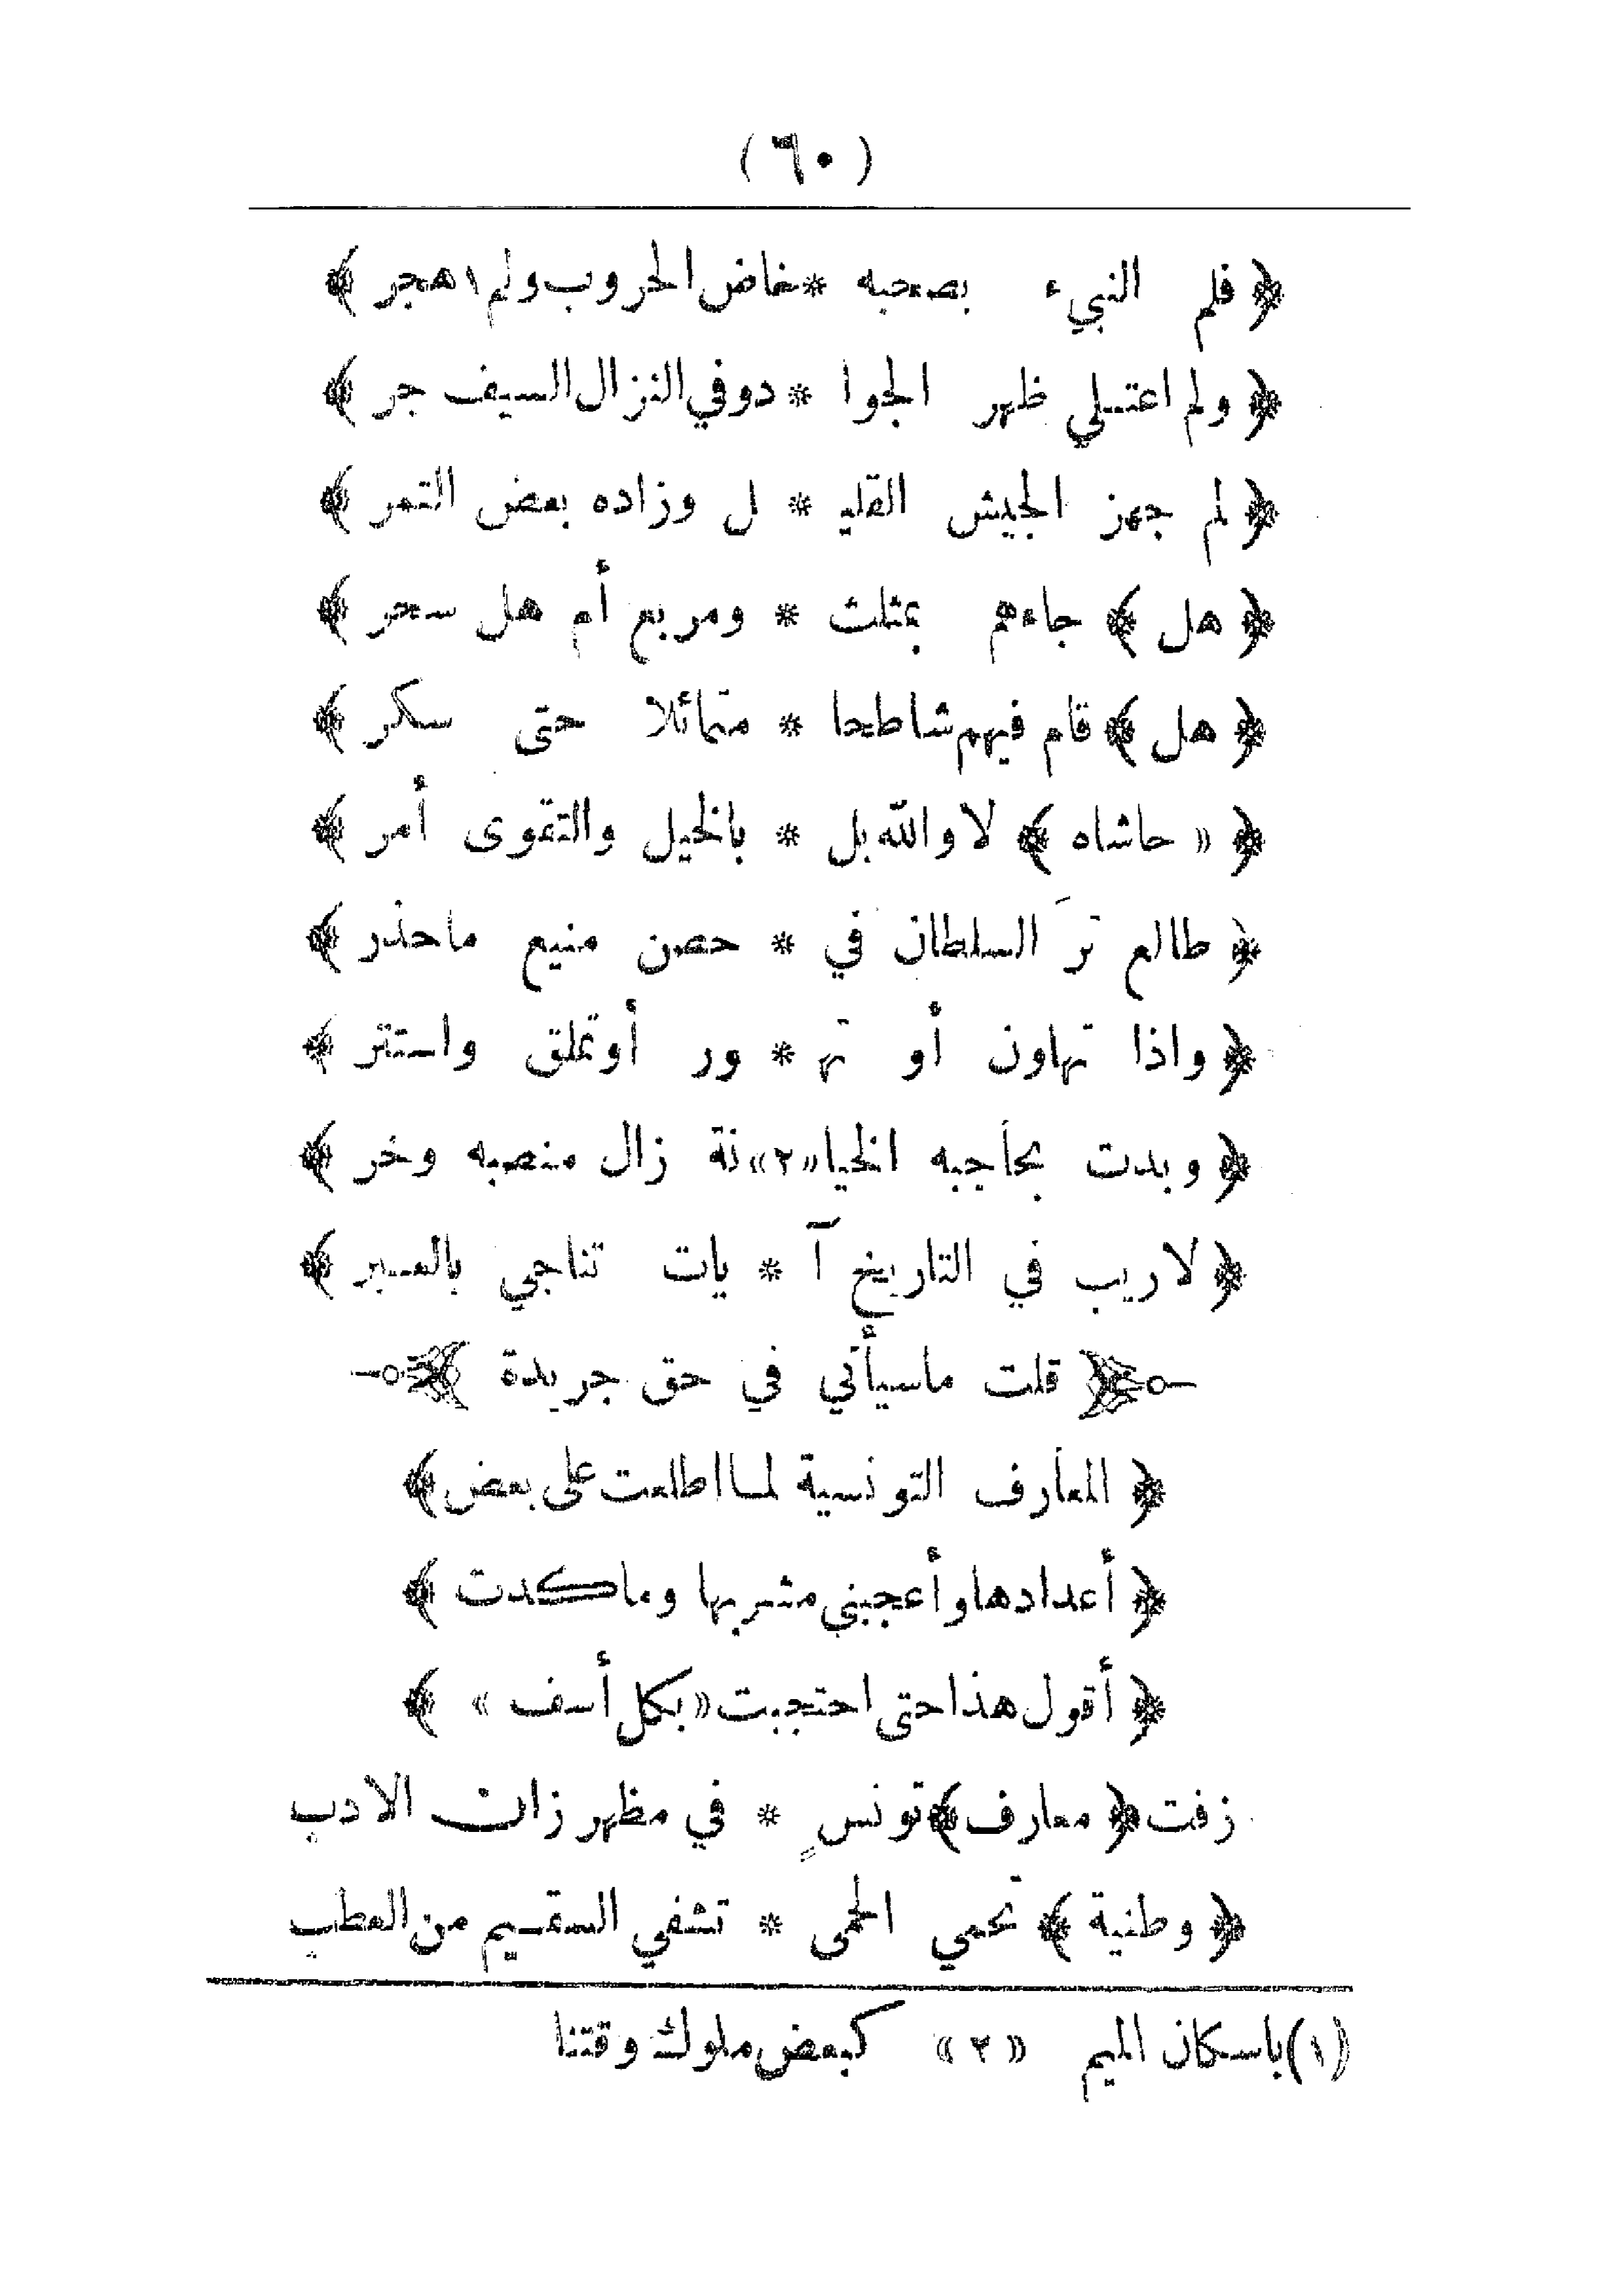 (٦٠)
﴿ فلم النبيء بصحبه * خاض الحروب ولم ١ هجر ﴾
﴿ ولم اعتلي ظهر الجوا * دوفي النزال السيف جر ﴾
﴿ لم جهز الجيش القليـ * ـل وزاده بعض التمر ﴾
﴿ هل ﴾ جاءهم بمثلث * ومربع أم هل سحر ﴾
﴿ هل ﴾ قام فيهم شاطحا * متمائلا حتى سكر ﴾
﴿ « حاشاه ﴾ لا والله بل * بالخيل والتقوى أمر ﴾
﴿ طالع ترَ السلطان في * حصن منيع ماحذر ﴾
﴿ واذا تهاون أو تهـ * ـور أوتملق واستتر ﴾
﴿ وبدت بحاجبه الخيا «٢» نة زال منصبه وخر ﴾
﴿ لاريب في التاريخ آ * يات تناجي بالعبر ﴾
﴿ قلت ماسيأتي في حق جريدة ﴾
﴿ المعارف التونسية لما اطلعت على بعض ﴾
﴿ أعدادها وأعجبني مشربها وماكدت ﴾
﴿ أقول هذا حتى احتجبت « بكل أسف » ﴾
زفت ﴿ معارف ﴾ تونسٍ * في مظهر زان الادب
﴿ وطنية ﴾ تحمي الحمى * تشفي السقيم من العطب
(١) باسكان الميم «٢» كبعض ملوك وقتنا